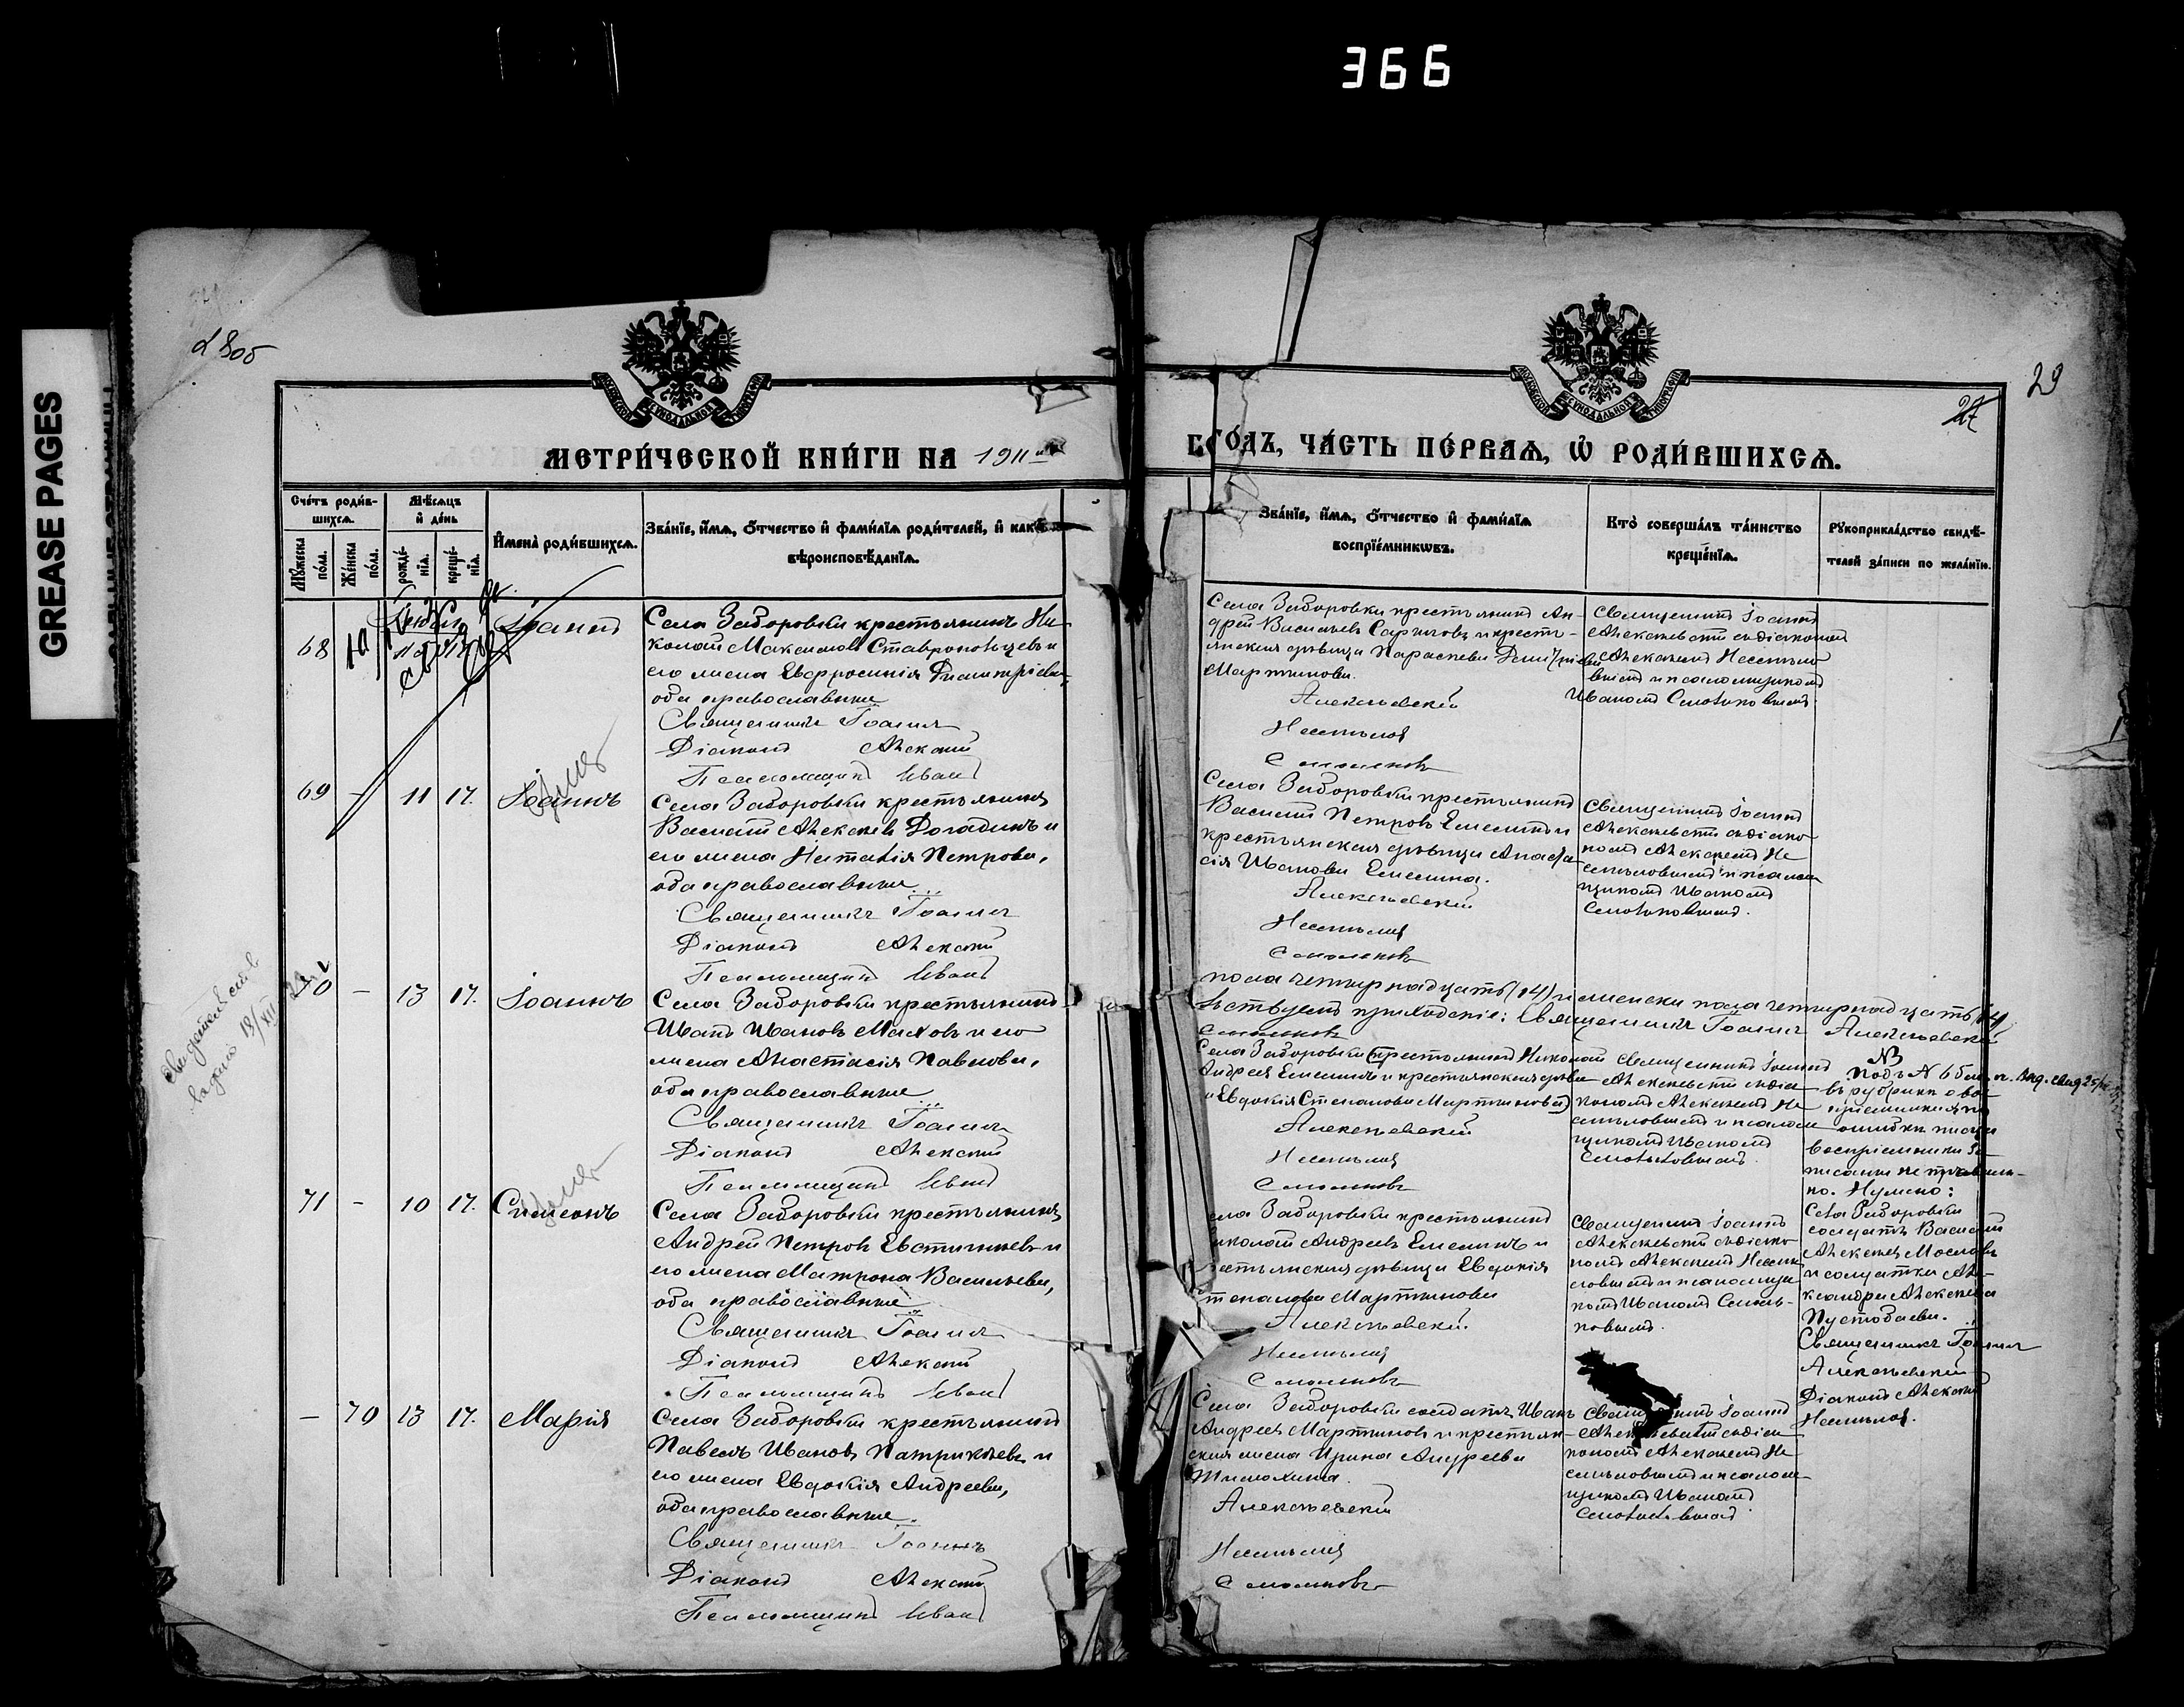 366
GREASE PAGES
29
27
МОСКОВСКОЙ СѴНОДАЛЬНОЙ ТИПОГРАФІИ
МОСКОВСКОЙ СѴНОДАЛЬНОЙ ТИПОГРАФІИ
МЕТРИ́ЧЕСКОЙ КНИ́ГИ НА 1911
ГО́ДЪ, ЧА́СТЬ ПЕ́РВАѦ, Ѡ РОДИ́ВШИХСѦ.
Сче́тъ роди́в-
шихсѧ.
Мꙋ́жеска по́ла.
Же́нска по́ла.
Мѣ́сѧцъ и де́нь
рожде́-нїѧ.
креще́-нїѧ.
Имена̀ роди́вшихсѧ.
Зва́нїе, и́мѧ, ѻ́тчество и фами́лїѧ роди́телей, и како́гѡ
вѣроисповѣ́данїѧ.
Зва́нїе, и́мѧ, ѻ́тчество и фами́лїѧ
воспрїе́мникѡвъ.
Кто̀ соверша́лъ та́инство
креще́нїѧ.
Рꙋкоприкла́дство свидѣ́-
телей за́писи по жела́нїю.
68
Іоаннъ
Села Заборовки крестьянинъ Ни-
колай Максимовъ Ставропольцевъ и
его жена Евфросинія Димитріева,
оба православные
Священникъ Іоаннъ
Діаконъ Алексій
Псаломщикъ Иванъ
Села Заборовки крестьянинъ Ан-
дрей Васильевъ и кресть-
янская дѣвица Параскева Димитріева
Мартынова.
Алексѣевскій
Несмѣлов
Смольковъ
Священникъ Іоаннъ
Алексѣевскій съ діакономъ
Алексіемъ Несмѣло
вымъ и псаломщикомъ
Иваномъ Смольковымъ.
69 - 11 17. Іоаннъ
Села Заборовки крестьянинъ
Василій Алексѣевъ Догадинъ и
его жена Наталія Петрова,
оба православные
Священникъ Іоаннъ
Діаконъ Алексій
Псаломщикъ Иванъ
Села Заборовки крестьянинъ
Василій Петровъ Емелинъ и
крестьянская дѣвица Анаста-
сія Иванова Емелина.
Алексѣевскій
Несмѣлов
Смольковъ
Священникъ Іоаннъ
Алексѣевскій съ діако-
номъ Алексіемъ Не
смѣловымъ и псалом
щикомъ Иваномъ
Смольковымъ.
70 - 13 17. Іоаннъ
Села Заборовки крестьянинъ
Иванъ Ивановъ Маховъ и его
жена Анастасія Павлова,
оба православные
Священникъ Іоаннъ
Діаконъ Алексій
Псаломщикъ Иванъ
пола четырнадцать (14) и женска пола четырнадцать (14)
Священникъ Іоаннъ Алексѣевскій
Смольковъ
Села Заборовки крестьянинъ Николай
Андреевъ Емелинъ и крестьянская дѣвица
Евдокія Степанова Мартынова
Алексѣевскій
Несмѣлов
Смольковъ
Священникъ Іоаннъ
Алексѣевскій съ діа
кономъ Алексіемъ Не
смѣловымъ и псалом
щикомъ Иваномъ
Смольковымъ.
NB
въ рубрикѣ о вос
пріемникахъ по
ошибкѣ писца
воспріемники за
писаны не правиль-
но. Нужно:
Села Заборовки
солдатъ Василій
Алексѣевъ Масловъ
и солдатка Але-
ксандра Алексѣева
Пустобаева.
Священникъ Іоаннъ
Алексѣевскій
Діаконъ Алексій
Несмѣловъ.
71 - 10 17. Симеонъ
Села Заборовки крестьянинъ
Андрей Петровъ Евстигнѣевъ и
его жена Матрона Васильева,
оба православные
Священникъ Іоаннъ
Діаконъ Алексій
Псаломщикъ Иванъ
ела Заборовки крестьянинъ
иколай Андреевъ Емелинъ и
естьянская дѣвица Евдокія
тепанова Мартынова
Алексѣевскій
Несмѣлов
Смольковъ
Священникъ Іоаннъ
Алексѣевскій съ діако
номъ Алексіемъ Несмѣ
ловымъ и псаломщи
комъ Иваномъ Смоль-
ковымъ.
- 70 13 17. Марія
Села Заборовки крестьянинъ
Павелъ Ивановъ Патрикѣевъ и
его жена Евдокія Андреева,
оба православные.
Священникъ Іоаннъ
Діаконъ Алексій
Псаломщикъ Иванъ
Села Заборовки солдатъ Иванъ
Андреевъ Мартыновъ и крестьян-
ская жена Ирина Андреева
Тимохина.
Алексѣевскій
Несмѣлов
Смольковъ
Іоаннъ
съ діа
кономъ Алексіемъ Не
смѣловымъ и псалом-
щикомъ Иваномъ
Смольковымъ